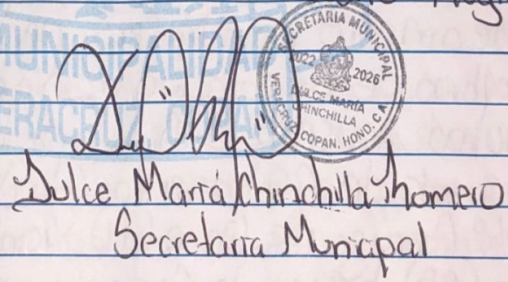 MUNICIPALIDAD
VERACRUZ, COPAN
SECRETARIA MUNICIPAL
2022 2026
DULCE MARIA
CHINCHILLA
VERACRUZ, COPAN, HOND. C.A.
Dulce María Chinchilla Thomero
Secretaria Municipal